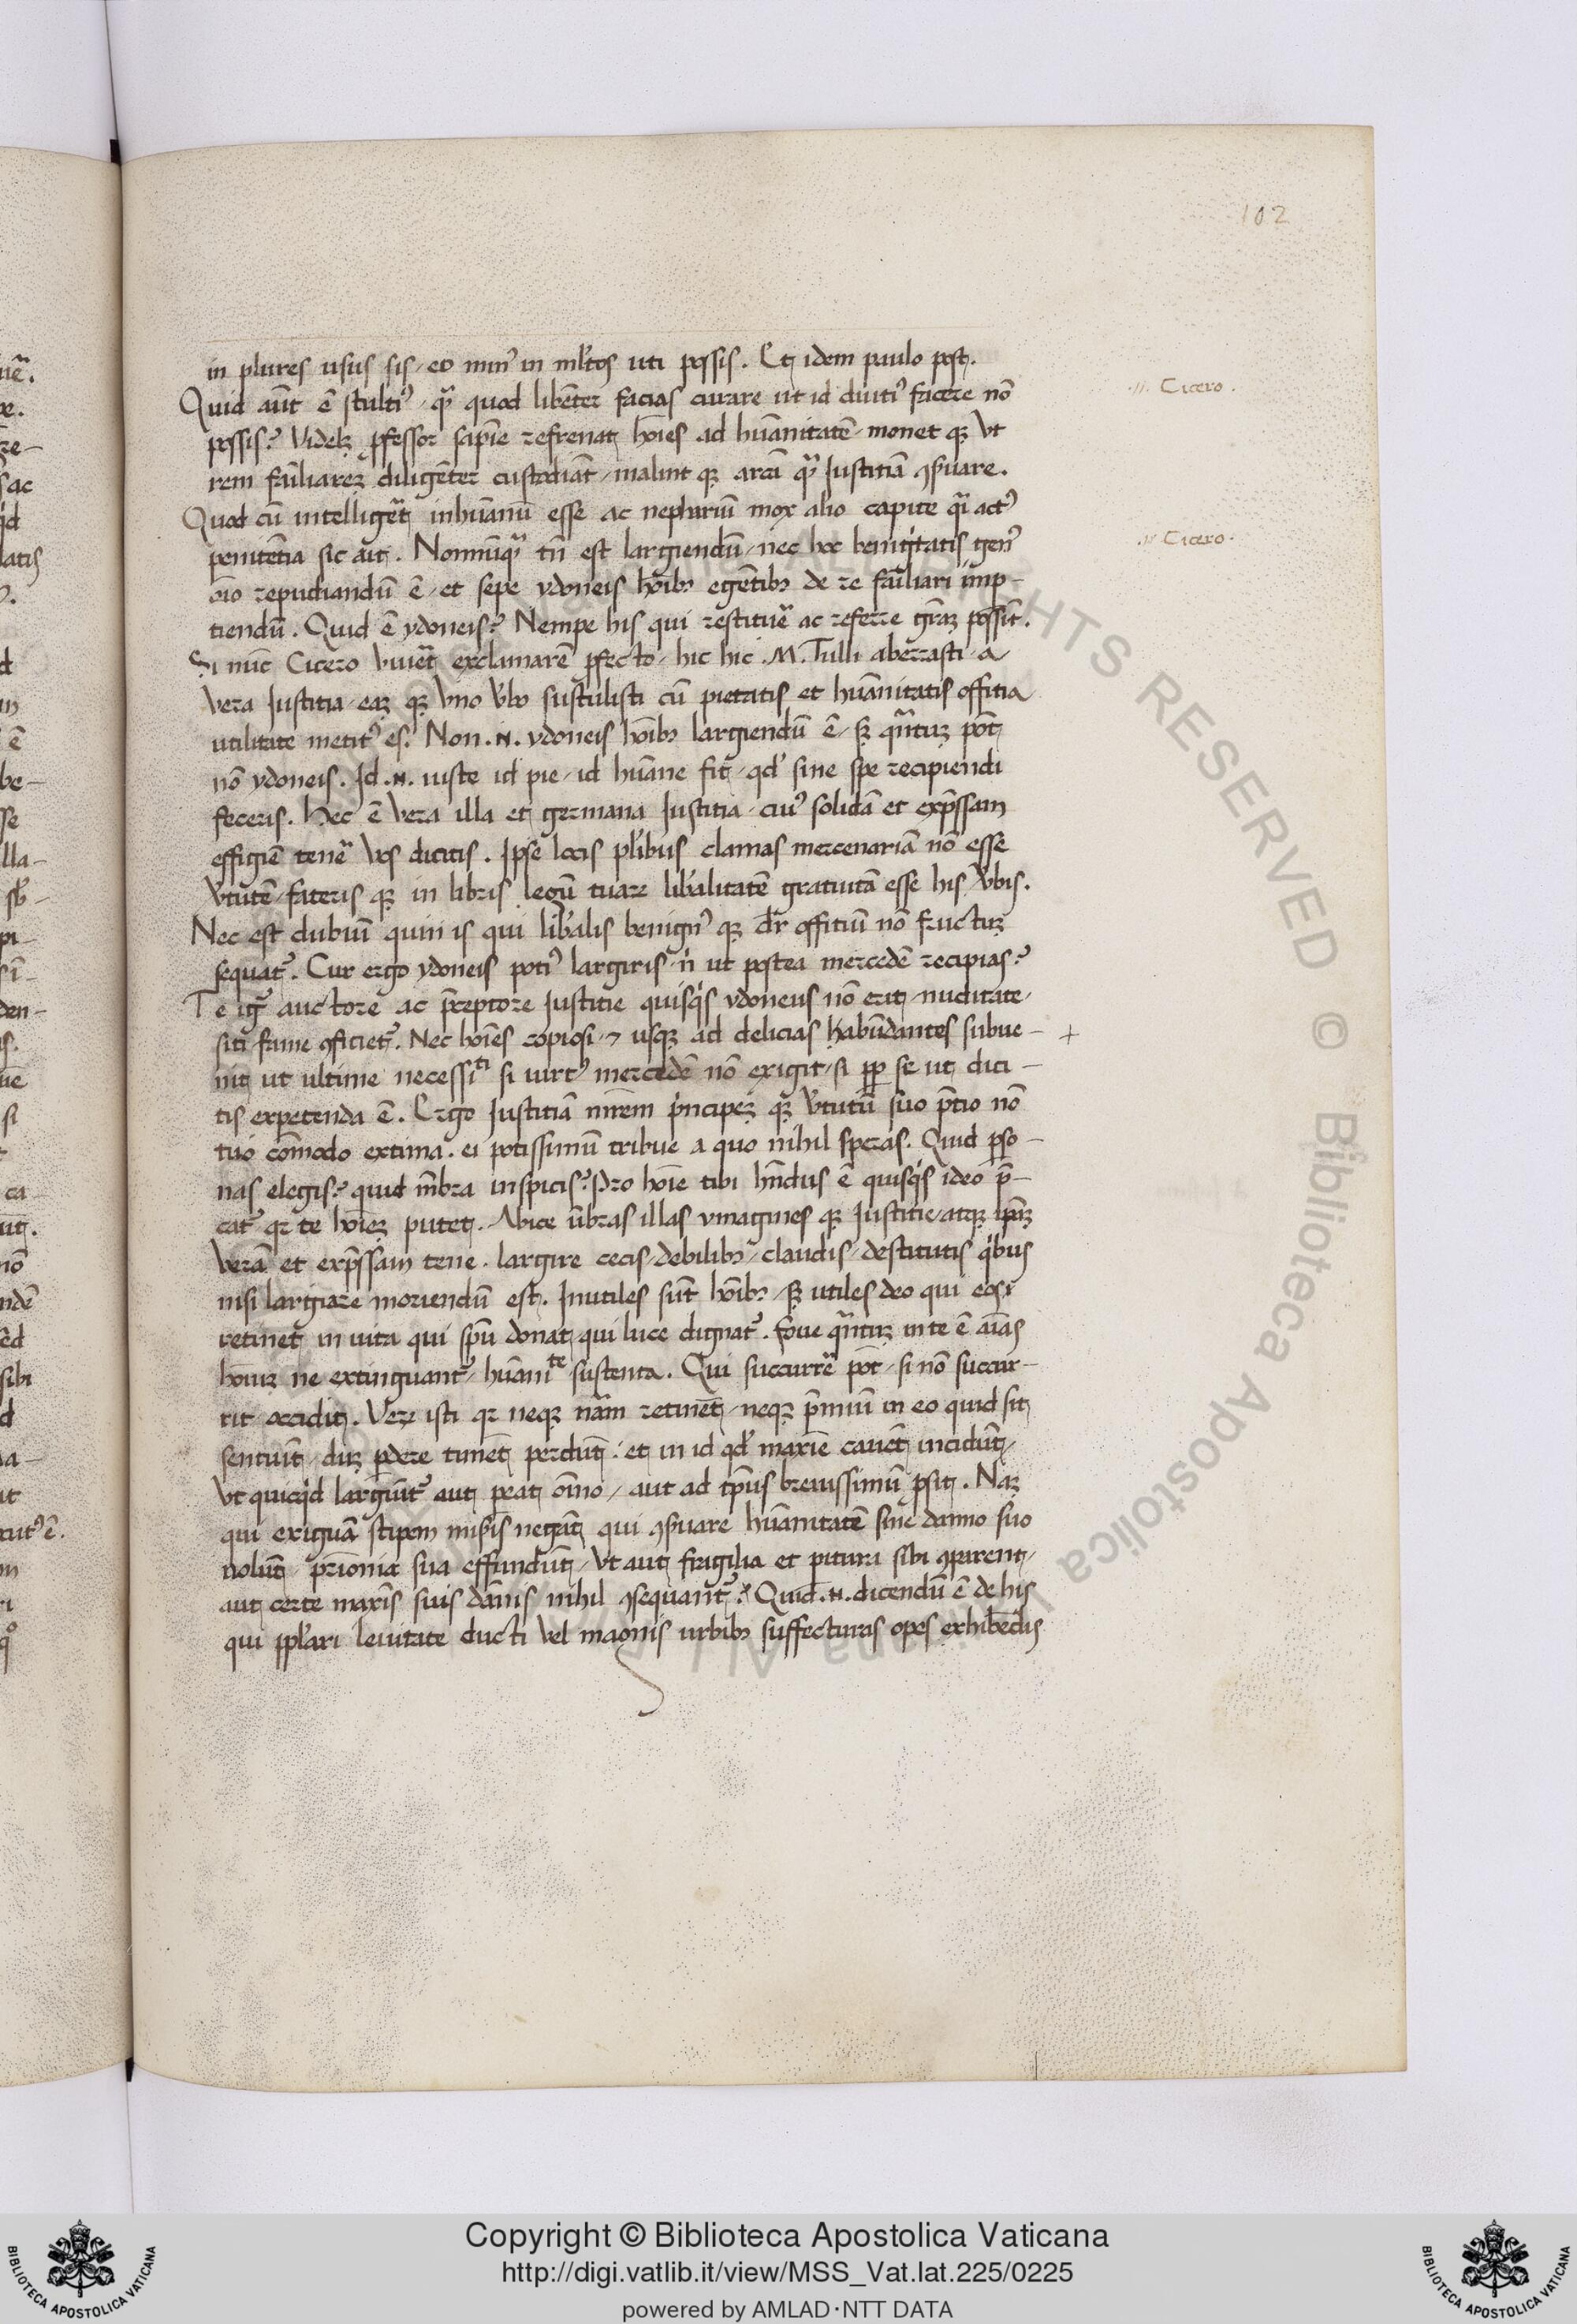 102
in plures usus sis / eo minꝰ in ml̓tos uti possis . Et idem paulo post .
.M. Cicero .
Quid aūt ē stultiꝰ / qͣ quod libēter facias curare ut id diutiꝰ facere nō
possis ? Videlꝫ ꝓfessor sapīe refrenat hoīes ad huāitatē / monet qꝫ ut
rem fāiliareꝫ diligēter custodiāt / malint qꝫ arcā qͣ Iustitiā ꝯẜuare .
Quod cū intelligēt̃ inhuānū esse ac nepharium mox alio capite qͣi actꝰ
penitētia sic ait . Nonnūqͣ tn̄ est largiendū / nec hoc benigītatis genꝰ
.M. Cicero .
oīo repudiandū ē / et sepe ydoneis hoībꝫ egētibꝫ de re fāiliari imp-
tiendū . Quid ē ydoneis ? Nempe his qui restituē ac referre grāꝫ possīt .
Si nūc Cicero viuēt̃ exclamarē ꝓfecto / hic hic .M. Tulli aberrasti a
vera Iustitia / eaꝫ qꝫ vno v̓bo sustulisti cū pietatis et huānitatis offitia
utilitate metitꝰ es . Non .N. ydoneis hoībꝫ largiendū ē / sꝫ qͣntuꝫ pōt
nō ydoneis . Id .N. iuste id pie / id huāne fit / qd̓ sine spe recipiendi
feceris . Hec ē vera illa et germana Iustitia / cuiꝰ solidā et exp̄ssam
effigiē tenē vos dicitis . Ipse locis pl̓ibus clamas mercenariā nō esse
v̓tutē / fateris qꝫ in libris legū tuarꝫ lib̓alitatē gratuitā esse his v̓bis .
Nec est dubiū quin is qui lib̓alis benignꝰ qꝫ dr̄ offitiū nō fructuꝫ
sequat̃ . Cur ergo ydoneis potiꝰ largiris / n̓ ut postea mercedē recipias ?
Te igr̃ auctore ac p̄ceptore Iustitie quisqͥs ydoneus nō erit / nuditate /
siti / fame ꝯficiet̃ . Nec hoīes copiosi / ⁊ usqꝫ ad delicias habūdantes subue-
+
nīt ut ultime necessiᵗⁱ si uirtꝰ mercedē nō exigit / si ꝓp se ut dici-
tis expetenda ē . Ergo Iustitiā mr̄em pͥncipeꝫ qꝫ v̓tutū suo p̄tio nō
tuo cōmodo extima . ei potissimū tribue a quo nihil speras . Quid pſo-
nas elegis ? quid mēbra inspicis ? Pro hoīe tibi hn̄dus ē quisqͥs ideo p̄-
cat̃ qꝛ te hoīeꝫ putet . Abice ūbras illas ymagines qꝫ Iustitie / atqꝫ ip̄aꝫ
verā et exp̄ssam tene . largire cecis / debilibꝫ / claudis / destitutis qͥbus
nisi largiare moriendū est . Inutiles sūt hoībꝫ / sꝫ utiles deo qui eos
retinet in uita qui sp̄u donat / qui luce dignat̃ . foue qͣntuꝫ in te ē aīas
hoīuꝫ ne extinguant̃ / huāniᵗᵉ sustenta . Qui succurrē pōt / si nō succur-
rit occidit . Veꝝ isti qꝛ neqꝫ nāam retinēt / neqꝫ p̄miū in eo quid sit
sentiūt / duꝫ ꝑdere timēt perdūt : et in id qd̓ maxīe cauēt incidūt /
vt quicqͥd largiūt̃ aut ꝑeat oīno / aut ad tp̄us breuissimū ꝓsit . Naꝫ
qui exiguā stipem mis̓is negāt qui ꝯẜuare huāitatē sine dāno suo
uolūt / p̄rīonia sua effundūt / vt aut fragilia et ꝑitura sibi ꝯparent /
aut certe maxīs suis dānis nihil ꝯsequant̃ ? Quid .N. dicendū ē de his
qui ppl̓ari leuitate ducti vel magnis urbibꝫ suffecturas opes exhibēdis
Copyright © Biblioteca Apostolica Vaticana
http://digi.vatlib.it/view/MSS_Vat.lat.225/0225
powered by AMLAD·NTT DATA